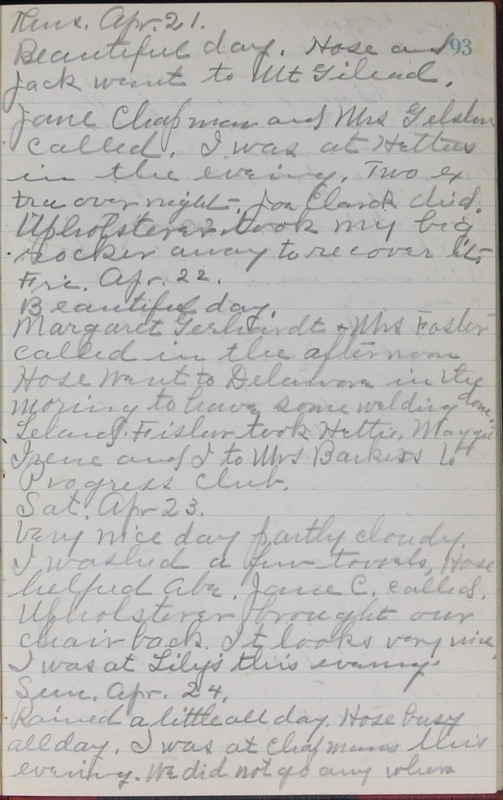 Thurs. Apr. 21.
93
Beautiful day. Hose and
Jack went to Mt Gilead.
Jane Chapman and Mrs Gelster
called. I was at Hetties
in the evening. Two ex
tra over night. Joe Clark died.
Upholsterer took my big
rocker away to recover it.
Fri. Apr. 22.
Beautiful day.
Margaret Gerhardt + Mrs Foster
called in the afternoon
Hose went to Delaware in the
morning to have some welding done.
Leland Fisher took Hettie, Maggie
Irene and I to Mrs Barkers to
Progress Club.
Sat. Apr 23.
Very nice day partly cloudy.
I washed a few towels, Hose
helped Abe. Jane C. called.
Upholsterer brought our
chair back. It looks very nice.
I was at Lily's this evening.
Sun. Apr. 24.
Rained a little all day. Hose busy
all day. I was at Chapmans this
evening. We did not go any where